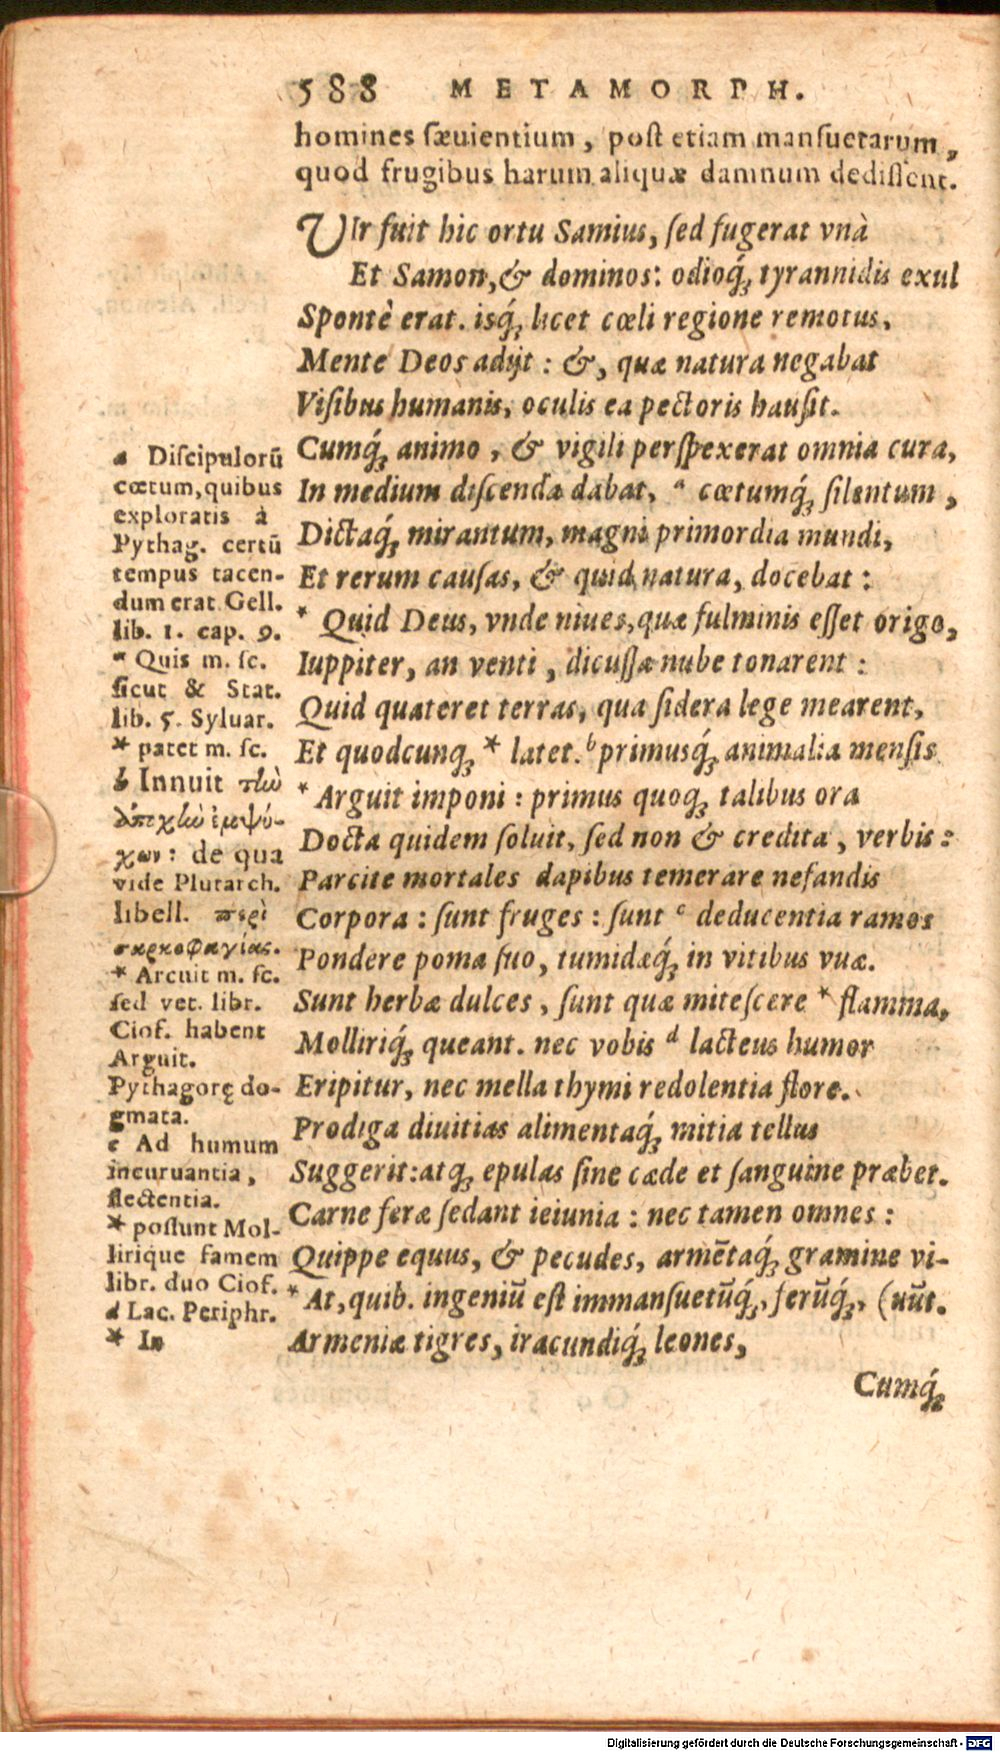 588 METAMORPH.
homines sæuientium, post etiam mansuetarum,
quod frugibus harum aliquæ damnum dedissent.
VIr fuit hic ortu Samius, sed fugerat vnà
Et Samon, & dominos: odioq́; tyrannidis exul
Spontè erat. isq́; licet cœli regione remotus,
Mente Deos adijt: &, quæ natura negabat
Visibus humanis, oculis ea pectoris hausit.
Cumq́; animo, & vigili perspexerat omnia cura,
In medium discenda dabat, a cœtumq́; silentum,
Dictaq́; mirantum, magni primordia mundi,
Et rerum causas, & quid natura, docebat:
* Quid Deus, vnde niues, quæ fulminis esset origo,
Iuppiter, an venti, discussa nube tonarent:
Quid quateret terras, qua sidera lege mearent,
Et quodcunq; * latet. b primusq́; animalia mensis
* Arguit imponi: primus quoq; talibus ora
Docta quidem soluit, sed non & credita, verbis:
Parcite mortales dapibus temerare nefandis
Corpora: sunt fruges: sunt c deducentia ramos
Pondere poma suo, tumidæq́; in vitibus vuæ.
Sunt herbæ dulces, sunt quæ mitescere * flamma,
Molliriq́; queant. nec vobis d lacteus humor
Eripitur, nec mella thymi redolentia flore.
Prodiga diuitias alimentaq́; mitia tellus
Suggerit: atq; epulas sine cæde et sanguine præbet.
Carne feræ sedant ieiunia: nec tamen omnes:
Quippe equus, & pecudes, armētaq́; gramine vi-
* At, quib. ingeniū est immansuetūq́;, ferūq́;, (uūt.
Armeniæ tigres, iracundiq́; leones,
Cumq́;
a Discipulorū
cœtum, quibus
exploratis à
Pythag. certū
tempus tacen-
dum erat Gell.
lib. 1. cap. 9.
* Quis m. sc.
sicut & Stat.
lib. 5. Syluar.
* patet m. sc.
b Innuit τὴν
ἀπεχὴν ἐμψύ-
χων: de qua
vide Plutarch.
libell. περὶ
σαρκοφαγίας.
* Arcuit m. sc.
sed vet. libr.
Ciof. habent
Arguit.
Pythagoræ do-
gmata.
c Ad humum
incuruantia,
flectentia.
* possunt Mol-
lirique famem
libr. duo Ciof.
d Lac. Periphr.
* In
Digitalisierung gefördert durch die Deutsche Forschungsgemeinschaft - DFG